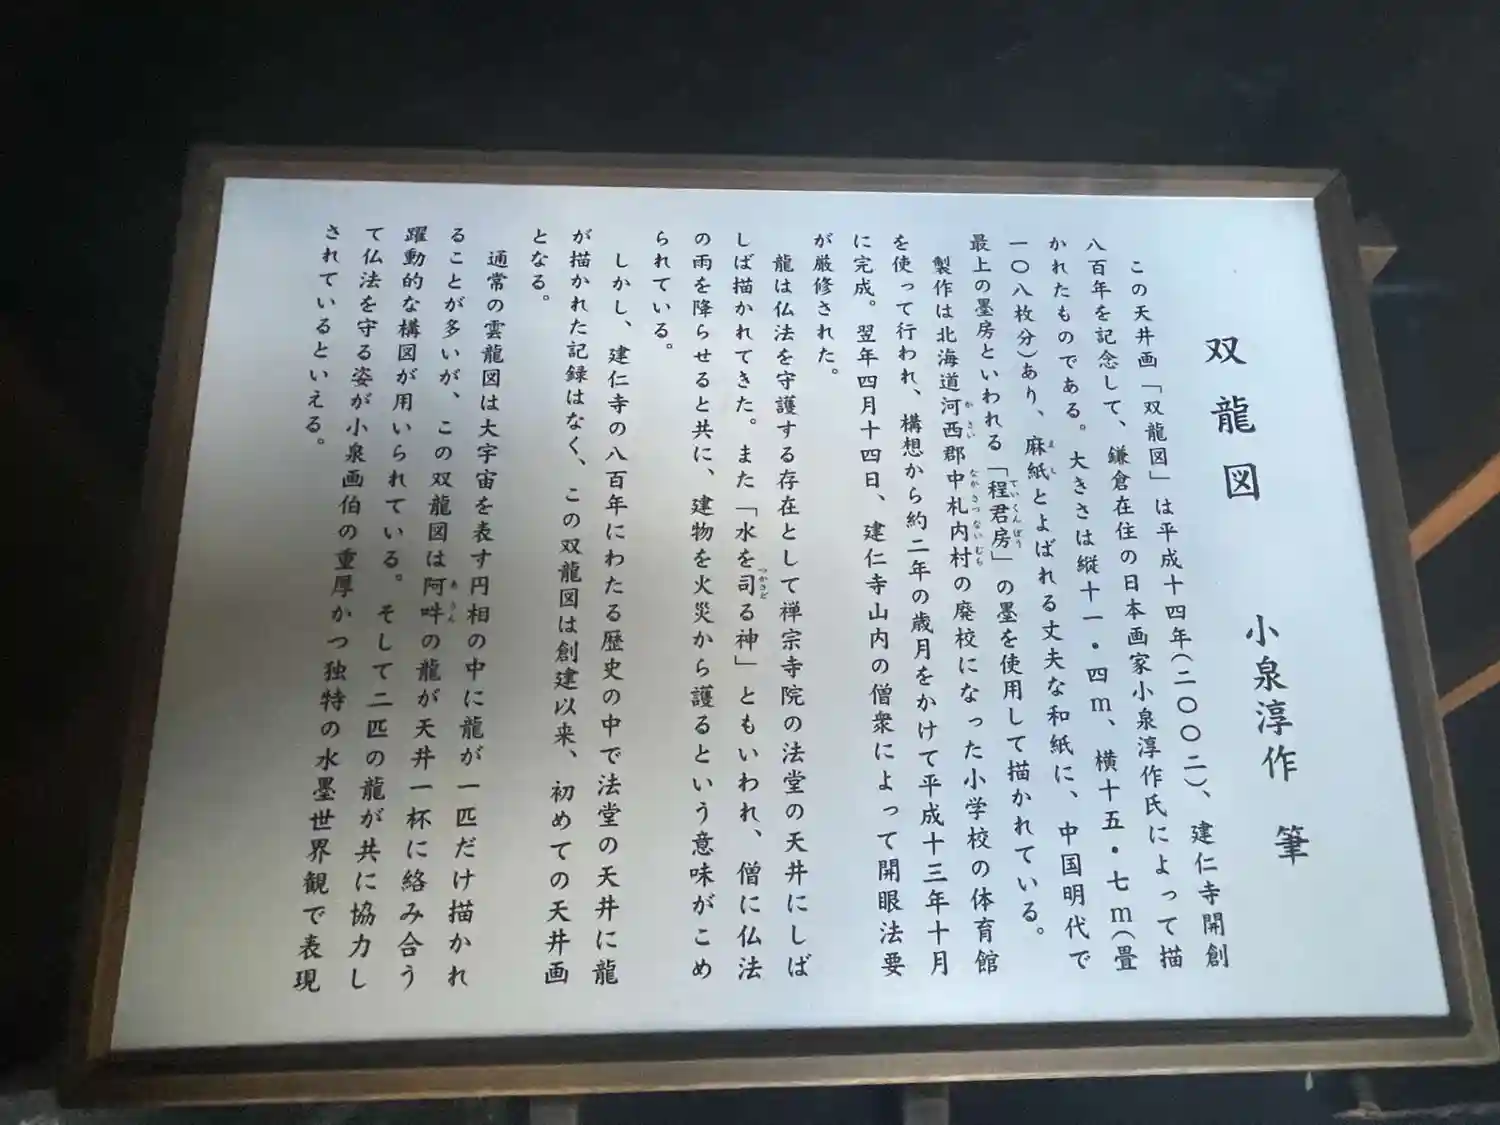 双龍図　小泉淳作　筆
この天井画「双龍図」は平成十四年(二〇〇二)、建仁寺開創
八百年を記念して、鎌倉在住の日本画家小泉淳作氏によって描
かれたものである。大きさは縦十一・四m、横十五・七m(畳
一〇八枚分)あり、麻紙とよばれる丈夫な和紙に、中国明代で
まし
最上の墨房といわれる「程君房」の墨を使用して描かれている。
ていくんぼう
製作は北海道河西郡中札内村の廃校になった小学校の体育館
かさい　なかさつないむら
を使って行われ、構想から約二年の歳月をかけて平成十三年十月
に完成。翌年四月十四日、建仁寺山内の僧衆によって開眼法要
が厳修された。
龍は仏法を守護する存在として禅宗寺院の法堂の天井にしば
しば描かれてきた。また「水を司る神」ともいわれ、僧に仏法
つかさど
の雨を降らせると共に、建物を火災から護るという意味がこめ
られている。
しかし、建仁寺の八百年にわたる歴史の中で法堂の天井に龍
が描かれた記録はなく、この双龍図は創建以来、初めての天井画
となる。
通常の雲龍図は大宇宙を表す円相の中に龍が一匹だけ描かれ
ることが多いが、この双龍図は阿吽の龍が天井一杯に絡み合う
あうん
躍動的な構図が用いられている。そして二匹の龍が共に協力し
て仏法を守る姿が小泉画伯の重厚かつ独特の水墨世界観で表現
されているといえる。